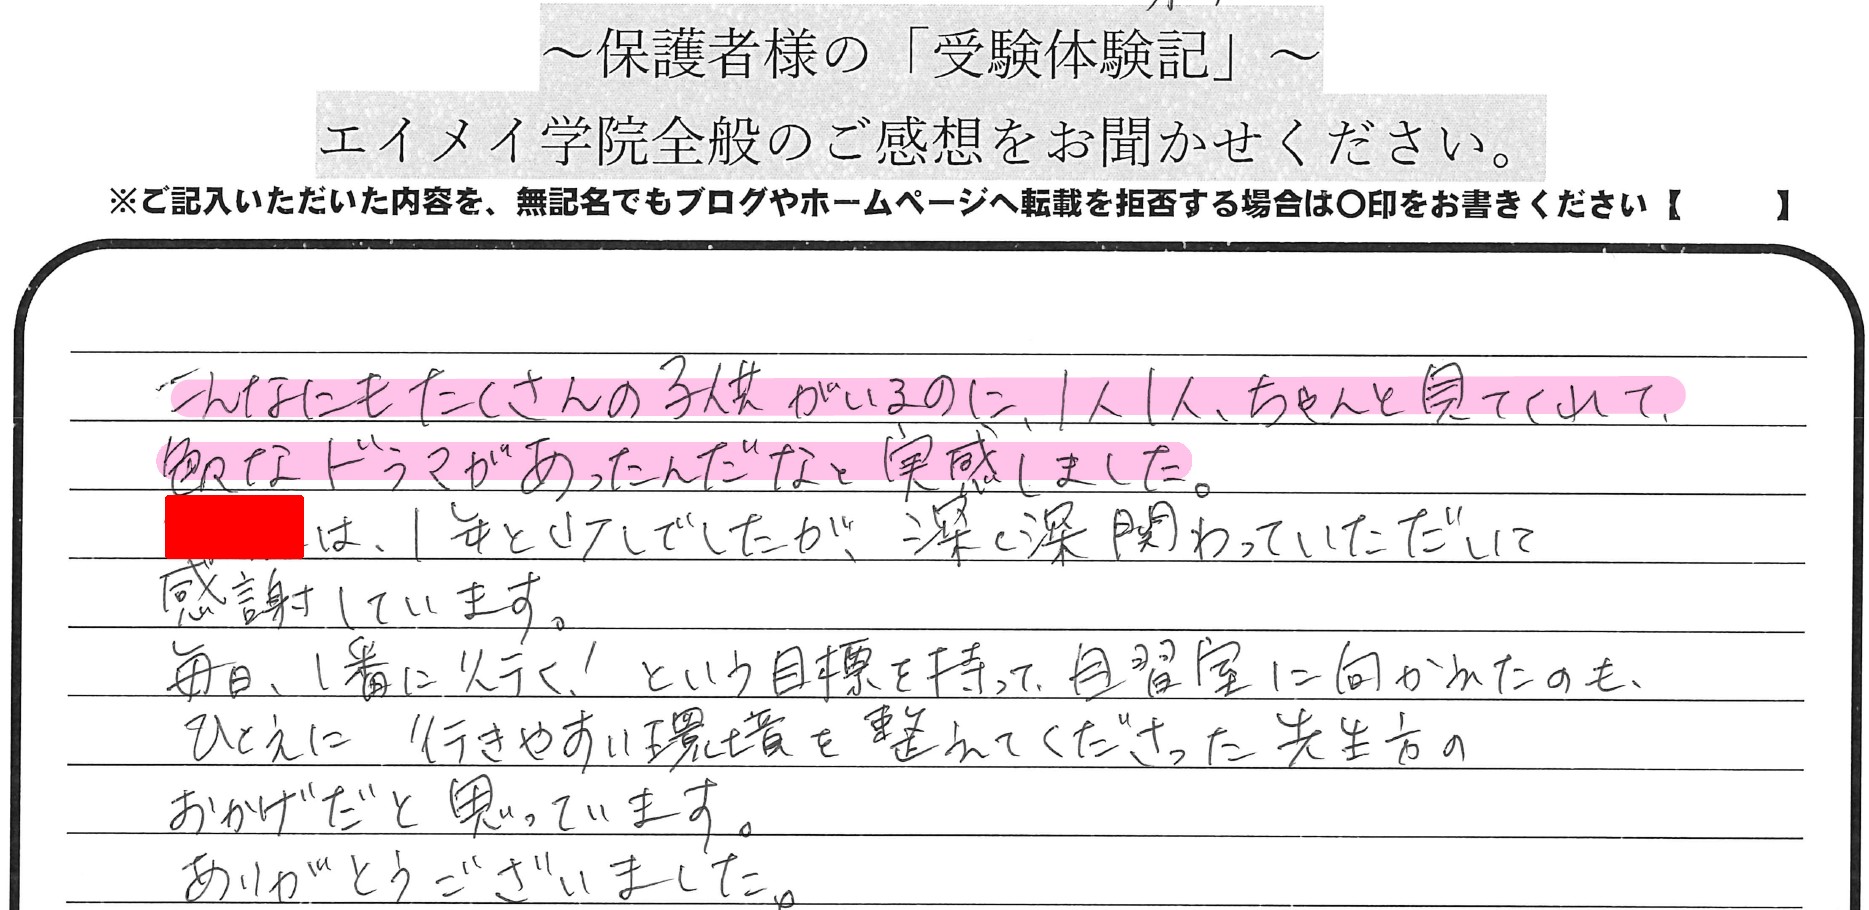 ～保護者様の「受験体験記」～
エイメイ学院全般のご感想をお聞かせください。
※ご記入いただいた内容を、無記名でもブログやホームページへ転載を拒否する場合は〇印をお書きください【　　　】
こんなにもたくさんの子供がいるのに、1人1人、ちゃんと見てくれて、
色々なドラマがあったんだなと実感しました。
は、1年と少しでしたが、深く深く関わっていただいて
感謝しています。
毎日、1番に行く！という目標を持って、自習室に向かれたのも、
ひとえに行きやすい環境を整えてくださった先生方の
おかげだと思っています。
ありがとうございました。